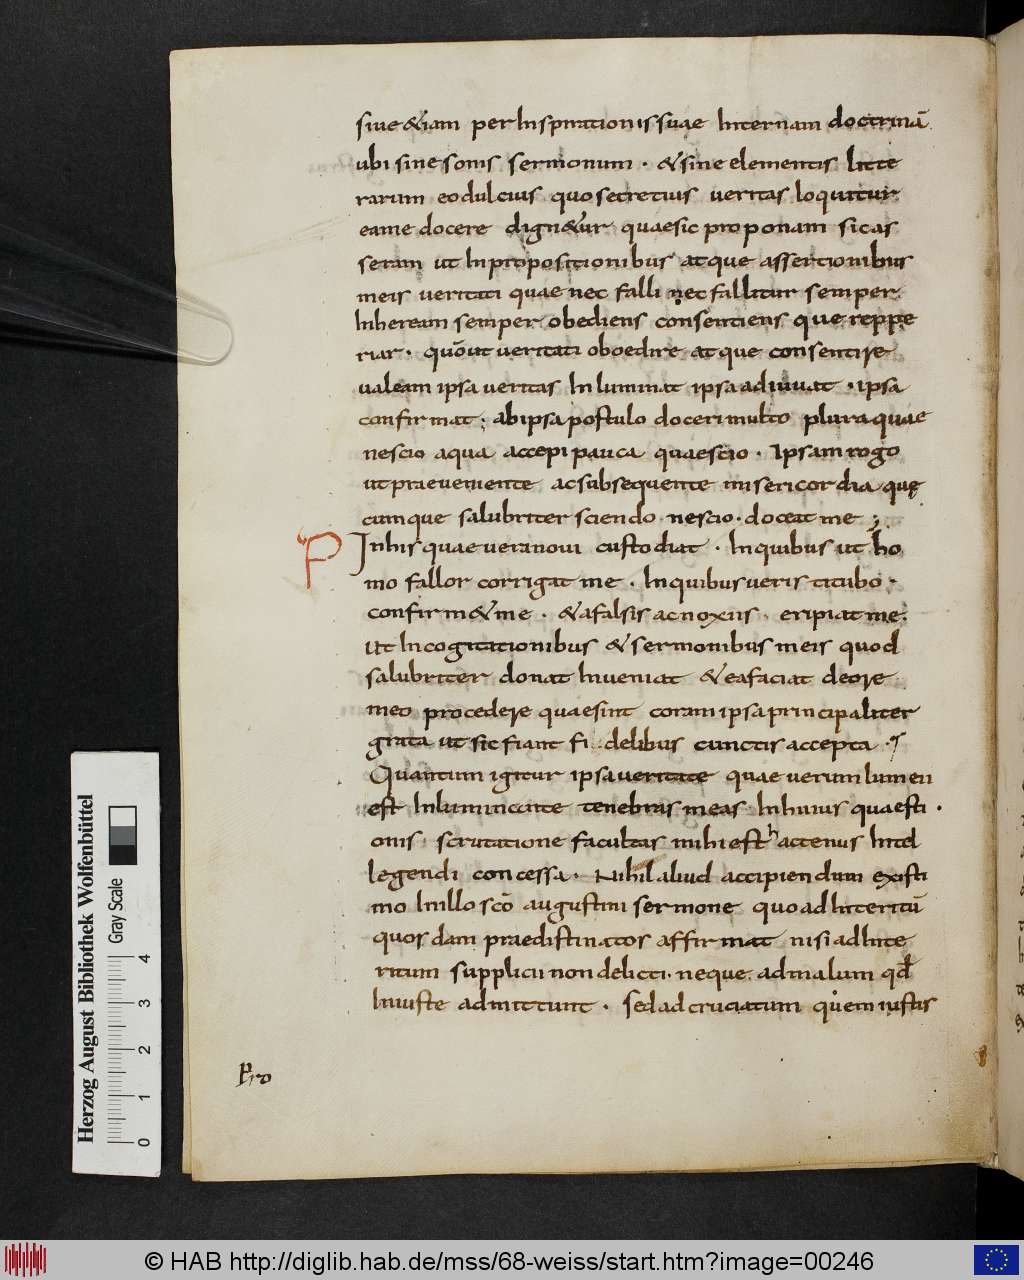 siue &iam per Inspirationis suae Internam doctrinā
ubi sine sonis sermonum · & sine elementis litte
rarum eo dulcius quo secretius ueritas loquitur
eame docere dign&ur quae sic proponam sic as
seram ut In propositionibus atque assertionibus
meis ueritati quae nec falli nec fallitur semper
Inheream semper obediens consentiens que reppe
riar · quō ut ueritati oboedire atque consentire
ualeam ipsa ueritas Inluminat ipsa adiuuat · ipsa
confirmat ; ab ipsa postulo doceri multo plura quae
nescio a qua accepi pauca quae scio · Ipsam rogo
ut praeueniente ac subsequente misericordia quę
cumque salubriter sciendo nescio · doceat me ;
P In his quae uera noui custodiat · In quibus ut ho
mo fallor corrigat me · In quibus ueris titubo ·
confirm& me · & a falsis ac noxiis · eripiat me ·
Ut In cogitationibus & sermonibus meis quod
salubriter donat Inueniat & ea faciat de ore
meo procedere quae sint coram ipsa principaliter
grata ut sic fiant fidelibus cunctis accepta ·
Quantum igitur ipsa ueritate quae uerum lumen
est Inluminante tenebras meas In huius quaesti ·
onis · scrutatione facultas mihi est hactenus Intel
legendi concessa · Nihil aliud accipiendum existi
mo In illo scō augustini sermone quo ad Interitū
quosdam praedistinatos affirmat nisi ad Inte
ritum supplicii non delicti · neque ad malum qđ
Iniuste admittunt · sed ad cruciatum quem iustis
Pro
Herzog August Bibliothek Wolfenbüttel
Gray Scale
0 1 2 3 4
© HAB http://diglib.hab.de/mss/68-weiss/start.htm?image=00246